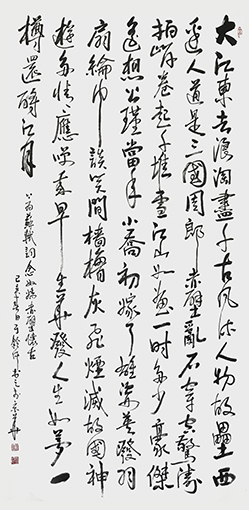 大江东去浪淘盡千古风流人物故壘西
邊人道是三國周郎赤壁亂石穿空驚濤
拍岸卷起千堆雪江山如画一时多少豪傑
遥想公瑾當年小喬初嫁了雄姿英發羽
扇綸巾談笑間檣櫓灰飛煙滅故國神
遊多情應笑我早生華發人生如夢一
樽還酹江月
蘇軾詞念奴嬌赤壁懷古